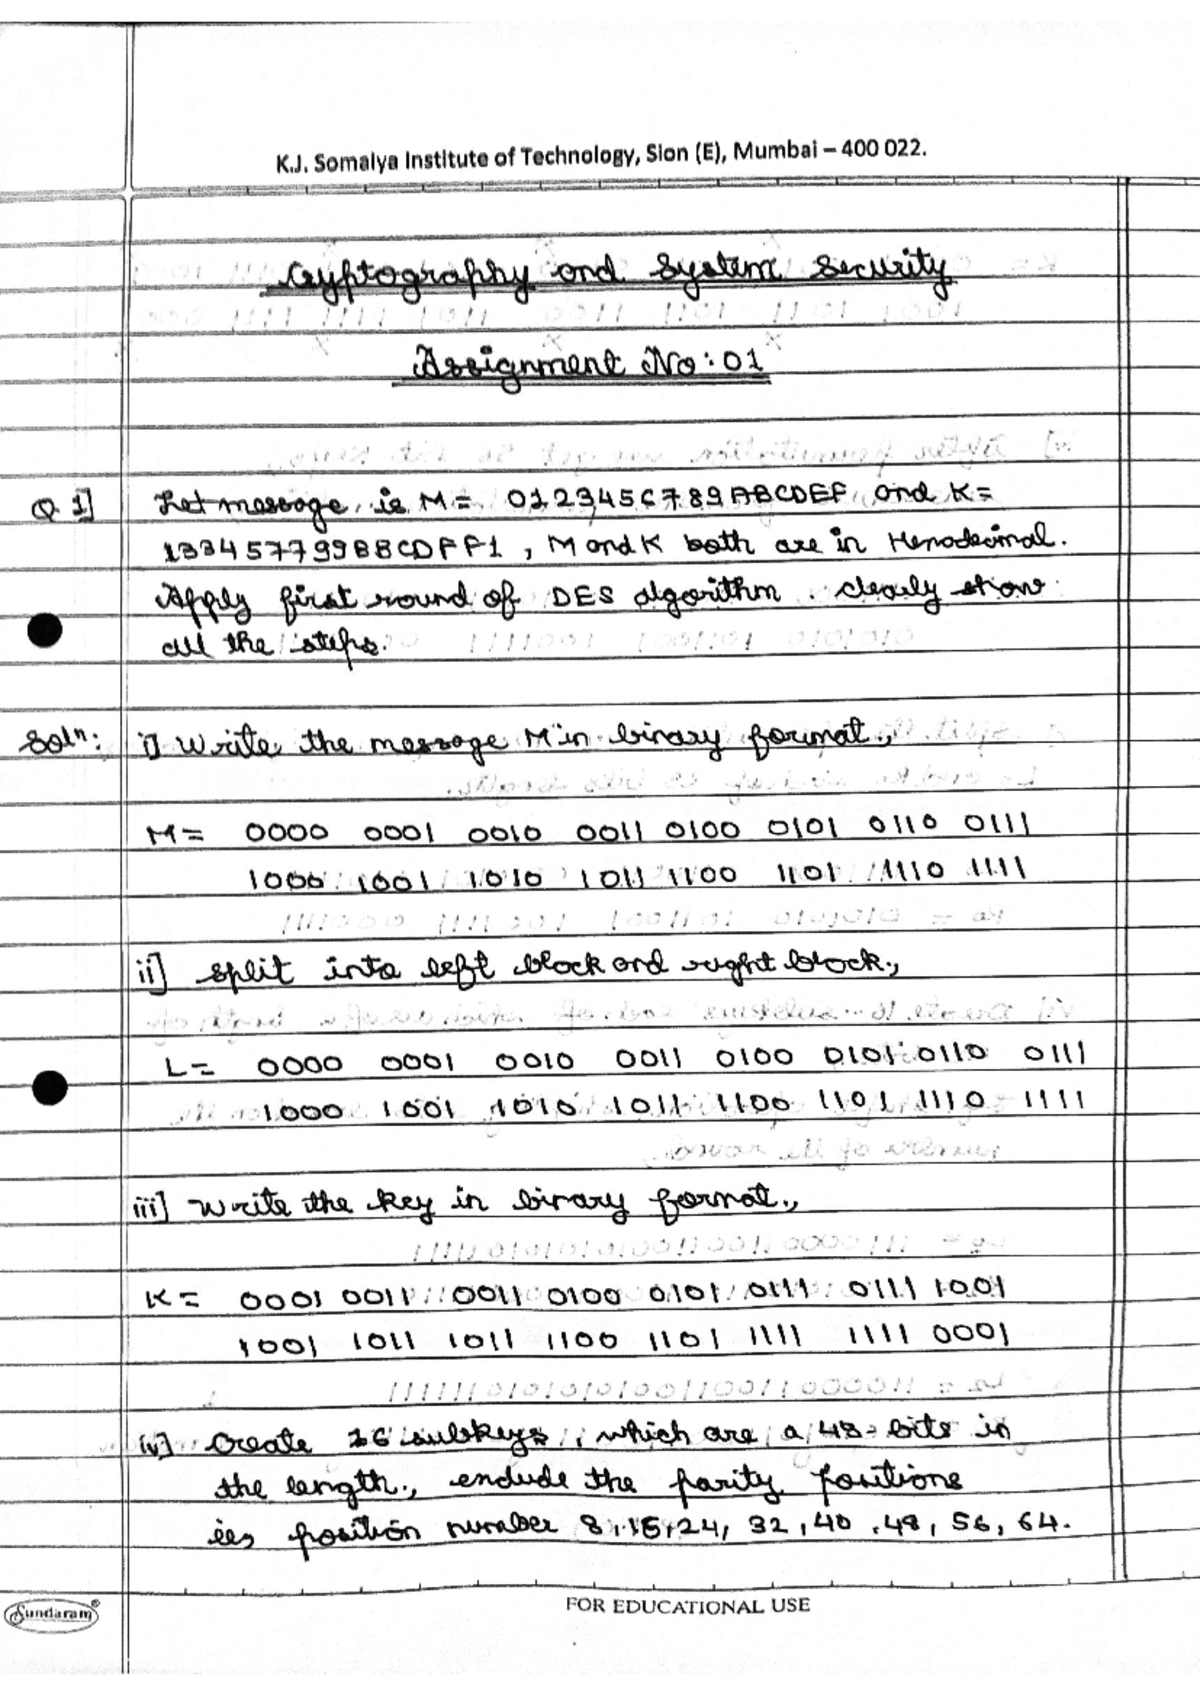 K.J. Somaiya Institute of Technology, Sion (E), Mumbai – 400 022.
Cryptography and System Security
Assignment No: 01
Q 1] Let message is M = 0123456789ABCDEF and K =
133457799BBCDFF1, M and K both are in Hexadecimal.
Apply first round of DES algorithm clearly show
all the steps.
Solⁿ: i] Write the message M in binary format.,
M = 0000 0001 0010 0011 0100 0101 0110 0111
1000 1001 1010 1011 1100 1101 1110 1111
ii] split into left block and right block.,
L = 0000 0001 0010 0011 0100 0101 0110 0111
1000 1001 1010 1011 1100 1101 1110 1111
iii] Write the key in binary format.,
K = 0001 0011 0011 0100 0101 0111 0111 1001
1001 1011 1011 1100 1101 1111 1111 0001
iv] Create 16 subkeys, which are a 48-bits in
the length., exclude the parity positions
ies position number 8, 16, 24, 32, 40, 48, 56, 64.
Sundaram®
FOR EDUCATIONAL USE